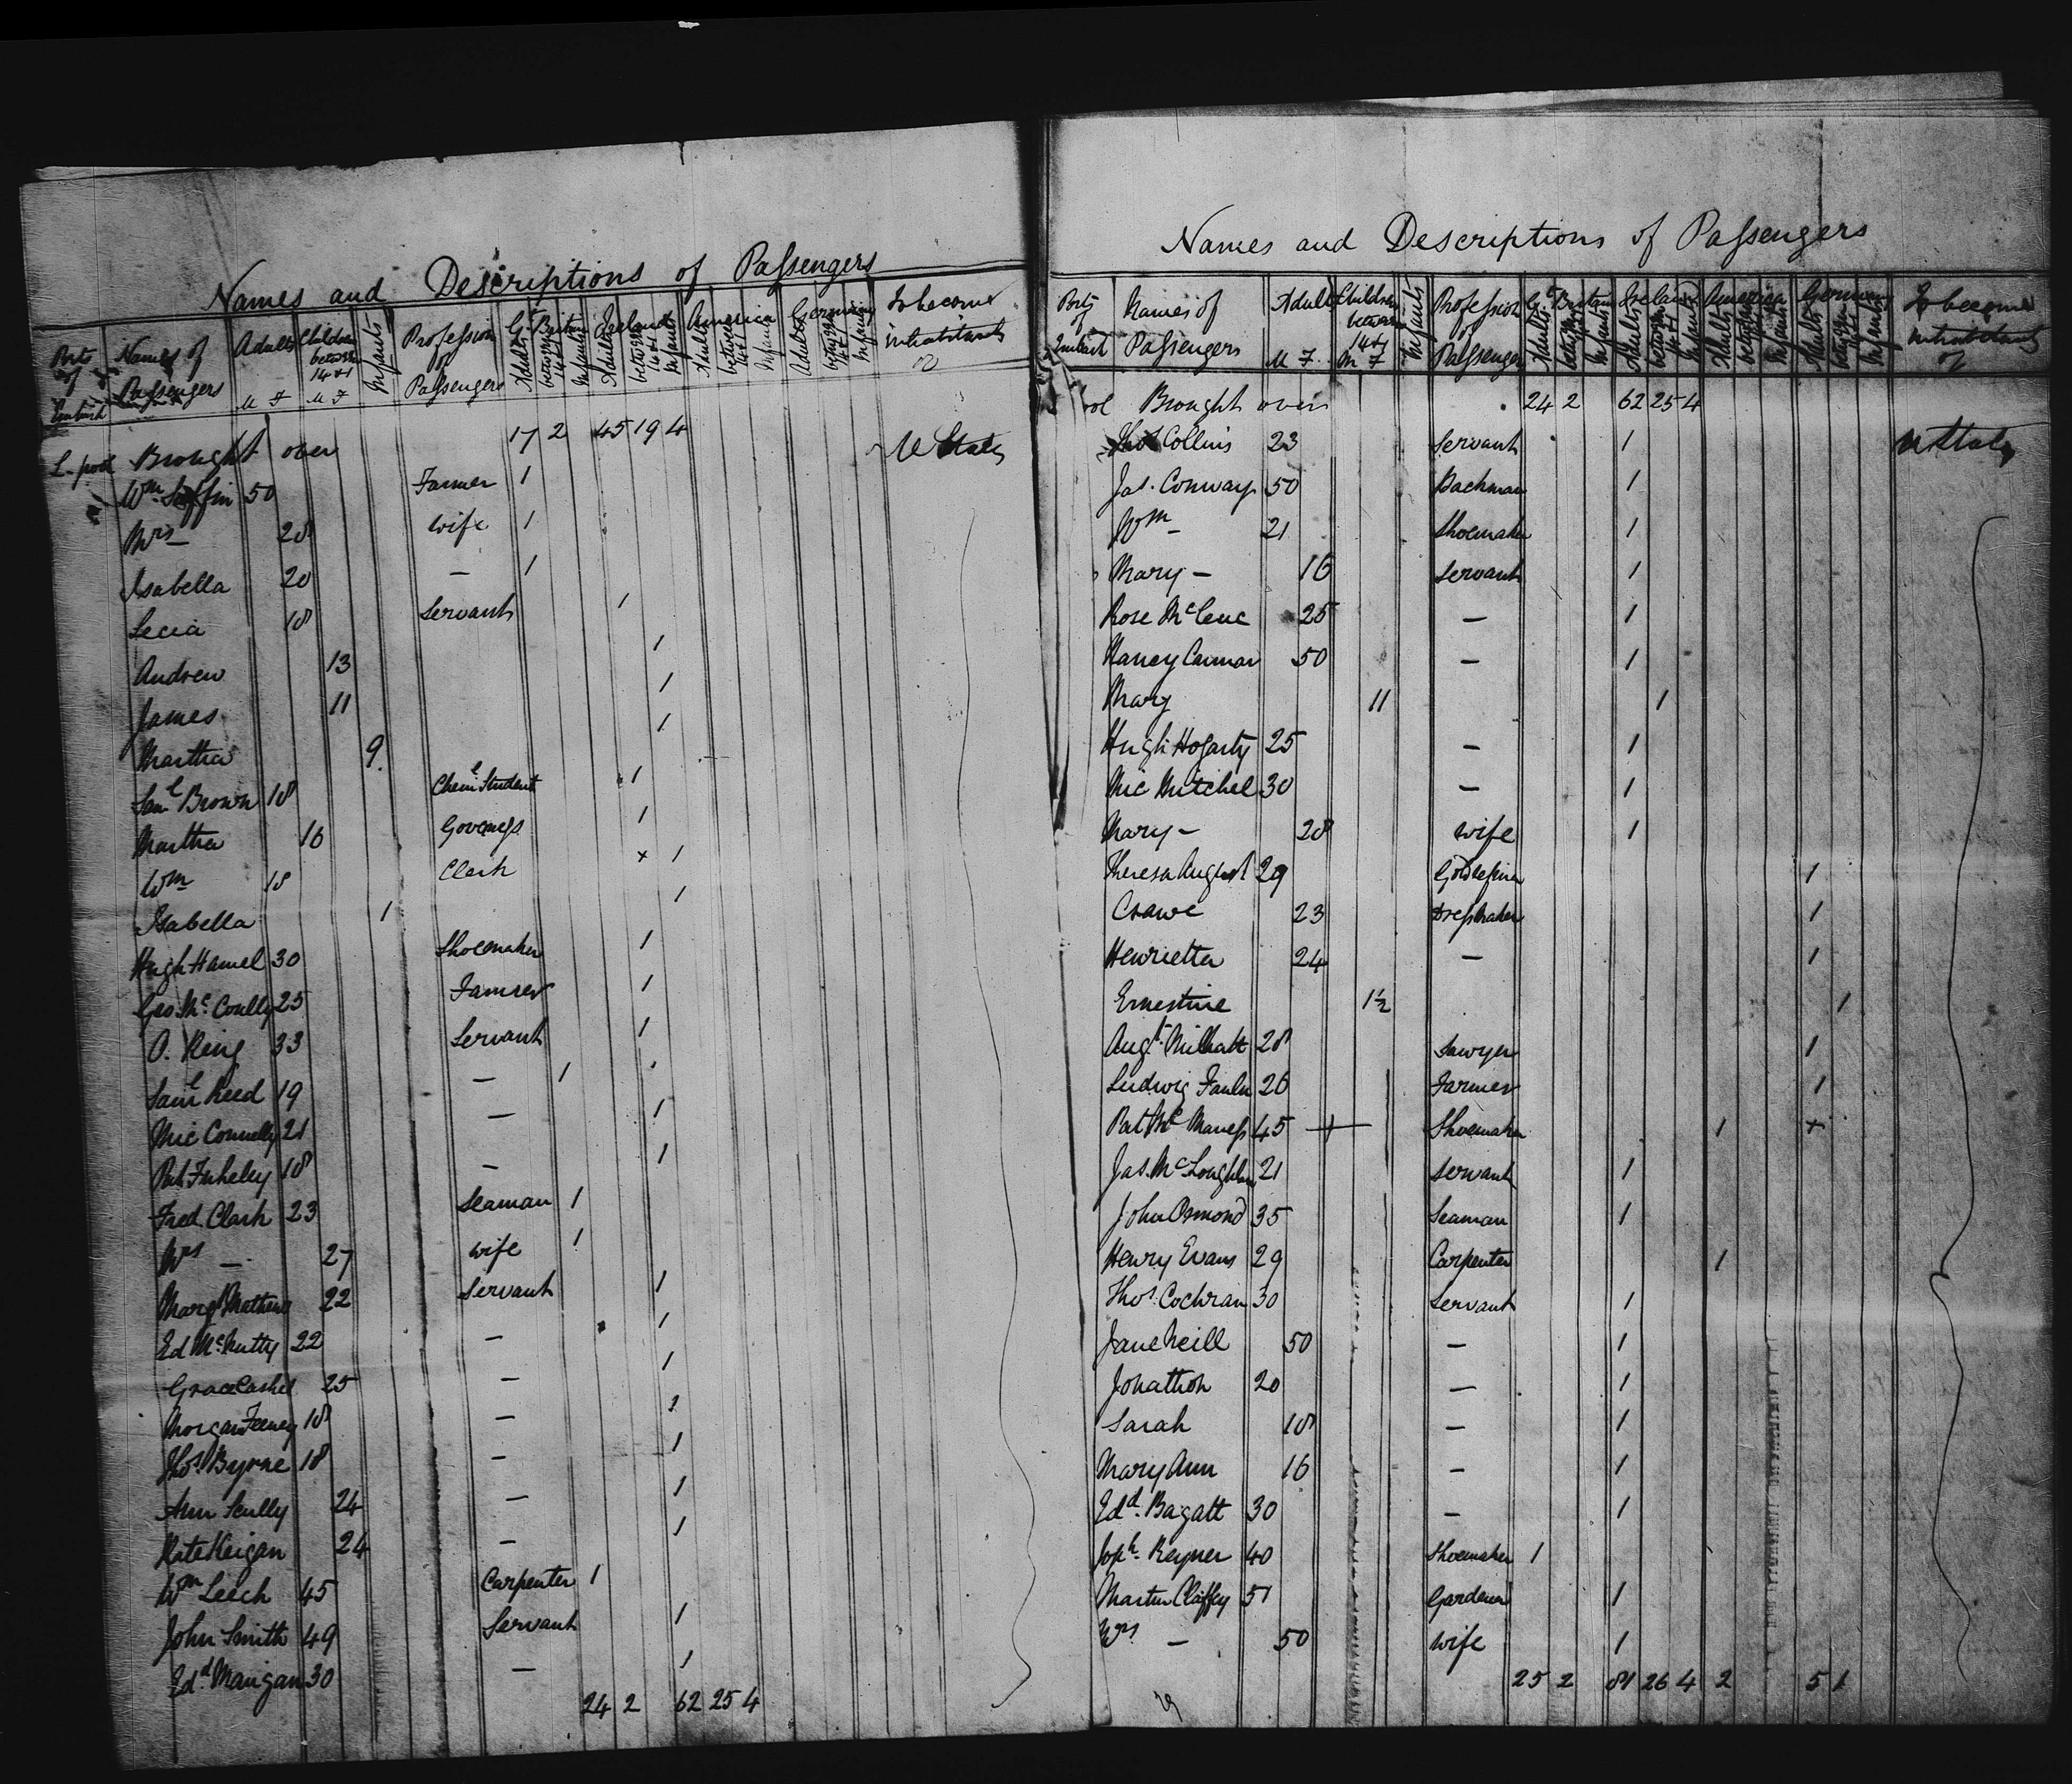 Names and Descriptions of Passengers
Ports of Embark Names of Passengers Adults M F Children between 14 & 1 M F Infants Profession of Passengers Gt Britain Adults between 14 & 1 Infants Ireland Adults between 14 & 1 Infants America Adults between 14 & 1 Infants Germany Adults between 14 & 1 Infants To become inhabitants of
L.pool Brought over 17 2 45 19 4 U States
Wm 50 Farmer 1
Mrs — 28 wife 1
Isabella 20 — 1
Lecia 18 Servant 1
Andrew 13 1
James 11 1
Martha 9 1
Saml Brown 18 Cheml Student 1
Martha 16 Governess 1
Wm 18 Clark x 1
Isabella 1 1
Hugh Hamel 30 Shoemaker 1
Geo. Mc Coully 25 Famrer 1
O. King 33 Servant 1
Saml Reed 19 — 1
Mic Connelly 21 — 1
Pat 18 — 1
Fred Clark 23 Seaman 1
Mrs — 27 wife 1
Margt Mathews 22 Servant 1
Ed McNutty 22 — 1
Grace Cashel 25 — 1
Morgan Feeney 18 — 1
Thos Byrne 18 — 1
Ann Scully 24 — 1
Kate Keigan 24 — 1
Wm Leech 45 Carpenter 1
John Smith 49 Servant 1
Edd Mangan 30 — 1
24 2 62 25 4
Names and Descriptions of Passengers
Ports of Embark Names of Passengers Adults M F Children between 14 & 1 M F Infants Profession of Passenger Gt Britain Adults between Infants Ireland Adults between 14 & 1 Infants America Adults between Infants Germany Adults between 14 & 1 Infants To become inhabitants of
ool Brought over 24 2 62 25 4
Thos Collins 23 Servant 1 U States
Jas. Conway 50 Packman 1
Wm — 21 Shoemaker 1
Mary — 16 Servant 1
Rose 25 — 1
Nancy 50 — 1
Mary 11 1
Hugh Hogarty 25 — 1
Mic Mitchel 30 — 1
Mary — 28 wife 1
Theresa August 29 1
23 Dressmaker 1
Henrietta 24 — 1
Ernestine 1½ 1
Augt 28 Sawyer 1
Ludwig 26 Farmer 1
Pat Mc Maness 45 Shoemaker 1 x
Jas. McLoughlin 21 Servant 1
John Osmond 35 Seaman 1
Henry Evans 29 Carpenter 1
Thos. Cochran 30 Servant 1
Jane Neill 50 — 1
Jonathon 20 — 1
Sarah 18 — 1
Mary Ann 16 — 1
Edd. Bagatt 30 — 1
Josh. Reyner 40 Shoemaker 1
Martin Claffey 51 Gardener 1
Mrs — 50 Wife 1
25 2 81 26 4 2 5 1